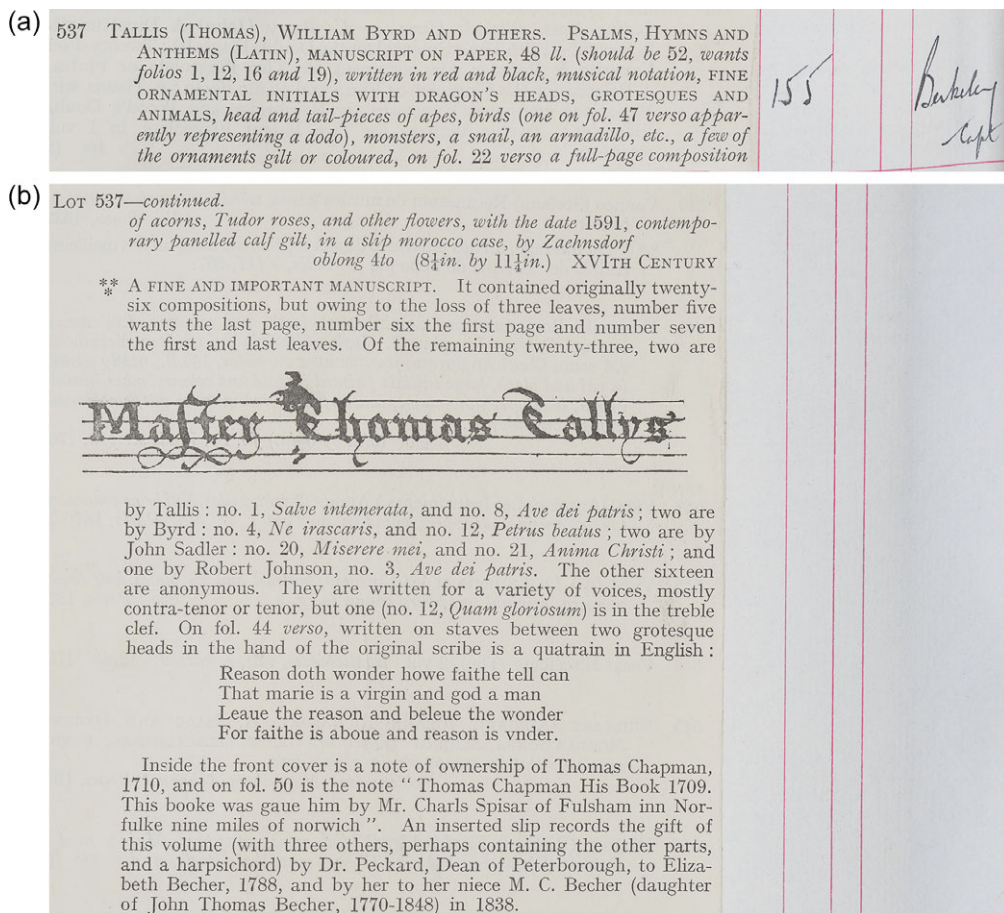 (a)
537 TALLIS (THOMAS), WILLIAM BYRD AND OTHERS. PSALMS, HYMNS AND
ANTHEMS (LATIN), MANUSCRIPT ON PAPER, 48 ll. (should be 52, wants
folios 1, 12, 16 and 19), written in red and black, musical notation, FINE
ORNAMENTAL INITIALS WITH DRAGON'S HEADS, GROTESQUES AND
ANIMALS, head and tail-pieces of apes, birds (one on fol. 47 verso appar-
ently representing a dodo), monsters, a snail, an armadillo, etc., a few of
the ornaments gilt or coloured, on fol. 22 verso a full-page composition
155
Berkeley
Capt
(b)
LOT 537—continued.
of acorns, Tudor roses, and other flowers, with the date 1591, contempo-
rary panelled calf gilt, in a slip morocco case, by Zaehnsdorf
oblong 4to (8¼in. by 11¼in.) XVITH CENTURY
*** A FINE AND IMPORTANT MANUSCRIPT. It contained originally twenty-
six compositions, but owing to the loss of three leaves, number five
wants the last page, number six the first page and number seven
the first and last leaves. Of the remaining twenty-three, two are
Master Thomas Tallys
by Tallis : no. 1, Salve intemerata, and no. 8, Ave dei patris ; two are
by Byrd : no. 4, Ne irascaris, and no. 12, Petrus beatus ; two are by
John Sadler : no. 20, Miserere mei, and no. 21, Anima Christi ; and
one by Robert Johnson, no. 3, Ave dei patris. The other sixteen
are anonymous. They are written for a variety of voices, mostly
contra-tenor or tenor, but one (no. 12, Quam gloriosum) is in the treble
clef. On fol. 44 verso, written on staves between two grotesque
heads in the hand of the original scribe is a quatrain in English :
Reason doth wonder howe faithe tell can
That marie is a virgin and god a man
Leaue the reason and beleue the wonder
For faithe is aboue and reason is vnder.
Inside the front cover is a note of ownership of Thomas Chapman,
1710, and on fol. 50 is the note " Thomas Chapman His Book 1709.
This booke was gaue him by Mr. Charls Spisar of Fulsham inn Nor-
fulke nine miles of norwich ". An inserted slip records the gift of
this volume (with three others, perhaps containing the other parts,
and a harpsichord) by Dr. Peckard, Dean of Peterborough, to Eliza-
beth Becher, 1788, and by her to her niece M. C. Becher (daughter
of John Thomas Becher, 1770-1848) in 1838.